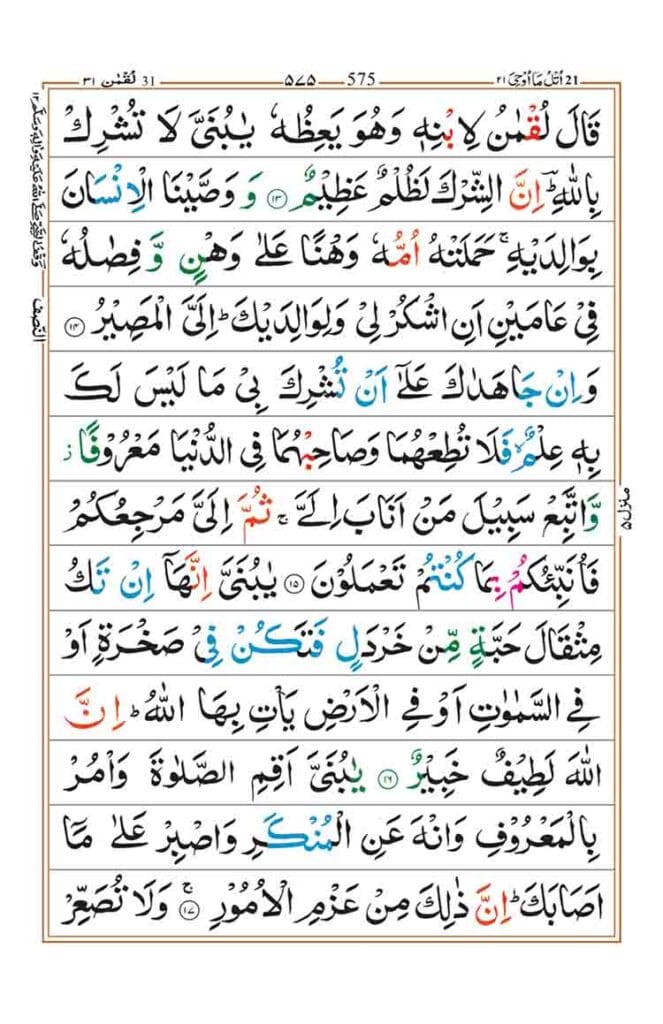 اتل ما اوحی ۲۱ 21
575 ۵۷۵
31 لقمٰن ۳۱
قَالَ لُقْمٰنُ لِابْنِهٖ وَهُوَ يَعِظُهٗ يٰبُنَيَّ لَا تُشْرِكْ
بِاللّٰهِ ؔؕ اِنَّ الشِّرْكَ لَظُلْمٌ عَظِيْمٌ ۝۱۳ وَ وَصَّيْنَا الْاِنْسَانَ
بِوَالِدَيْهِ ۚ حَمَلَتْهُ اُمُّهٗ وَهْنًا عَلٰى وَهْنٍ وَّ فِصٰلُهٗ
فِيْ عَامَيْنِ اَنِ اشْكُرْ لِيْ وَلِوَالِدَيْكَ ؕ اِلَيَّ الْمَصِيْرُ ۝۱۴
وَاِنْ جَاهَدٰكَ عَلٰٓى اَنْ تُشْرِكَ بِيْ مَا لَيْسَ لَكَ
بِهٖ عِلْمٌ ۙ فَلَا تُطِعْهُمَا وَصَاحِبْهُمَا فِي الدُّنْيَا مَعْرُوْفًا ز
وَّاتَّبِعْ سَبِيْلَ مَنْ اَنَابَ اِلَيَّ ۚ ثُمَّ اِلَيَّ مَرْجِعُكُمْ
فَاُنَبِّئُكُمْ بِمَا كُنْتُمْ تَعْمَلُوْنَ ۝۱۵ يٰبُنَيَّ اِنَّهَاۤ اِنْ تَكُ
مِثْقَالَ حَبَّةٍ مِّنْ خَرْدَلٍ فَتَكُنْ فِيْ صَخْرَةٍ اَوْ
فِي السَّمٰوٰتِ اَوْ فِي الْاَرْضِ يَاْتِ بِهَا اللّٰهُ ؕ اِنَّ
اللّٰهَ لَطِيْفٌ خَبِيْرٌ ۝۱۶ يٰبُنَيَّ اَقِمِ الصَّلٰوةَ وَاْمُرْ
بِالْمَعْرُوْفِ وَانْهَ عَنِ الْمُنْكَرِ وَاصْبِرْ عَلٰى مَاۤ
اَصَابَكَ ؕ اِنَّ ذٰلِكَ مِنْ عَزْمِ الْاُمُوْرِ ۚ ۝۱۷ وَلَا تُصَعِّرْ
النّصف
منزل ۵